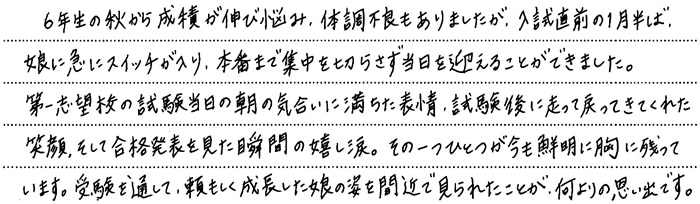 6年生の秋から成績が伸び悩み、体調不良もありましたが、入試直前の1月半ば、
娘に急にスイッチが入り、本番まで集中を切らさず当日を迎えることができました。
第一志望校の試験当日の朝の気合いに満ちた表情、試験後に走って戻ってきてくれた
笑顔、そして合格発表を見た瞬間の嬉し涙。その一つひとつが今も鮮明に胸に残って
います。受験を通して、頼もしく成長した娘の姿を間近で見られたことが、何よりの思い出です。